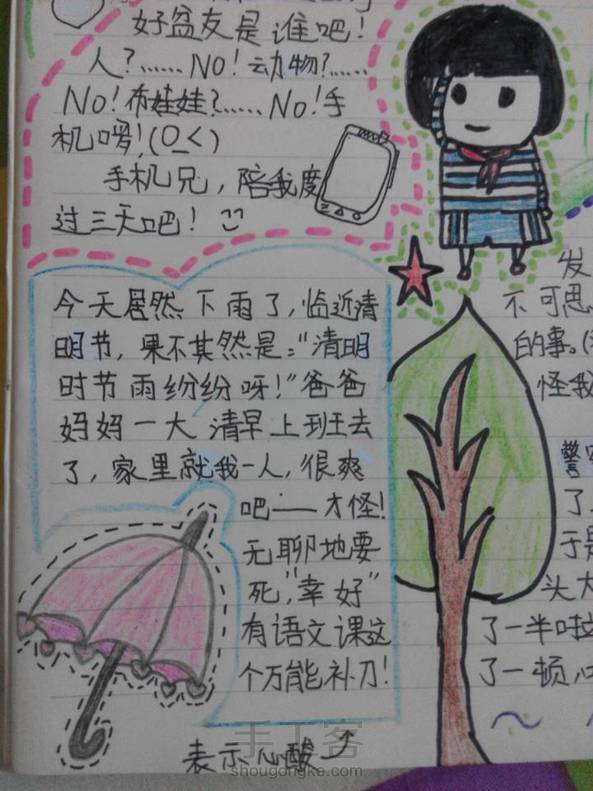 好盆友是谁吧!
人?……NO!动物?……
NO!布娃娃?……NO!手
机啰!(O_<)
手机兄,陪我度
过三天吧!
今天居然下雨了,临近清
明节,果不其然是:“清明
时节雨纷纷呀!”爸爸
妈妈一大清早上班去
了,家里就我一人,很爽
吧——才怪!
无聊地要
死,“幸好”
有语文课这
个万能补刀!
表示心酸
发
不可思
的事。
怪我
警
了
于是
头大
了一半啦
了一顿心
手工客
shougongke.com